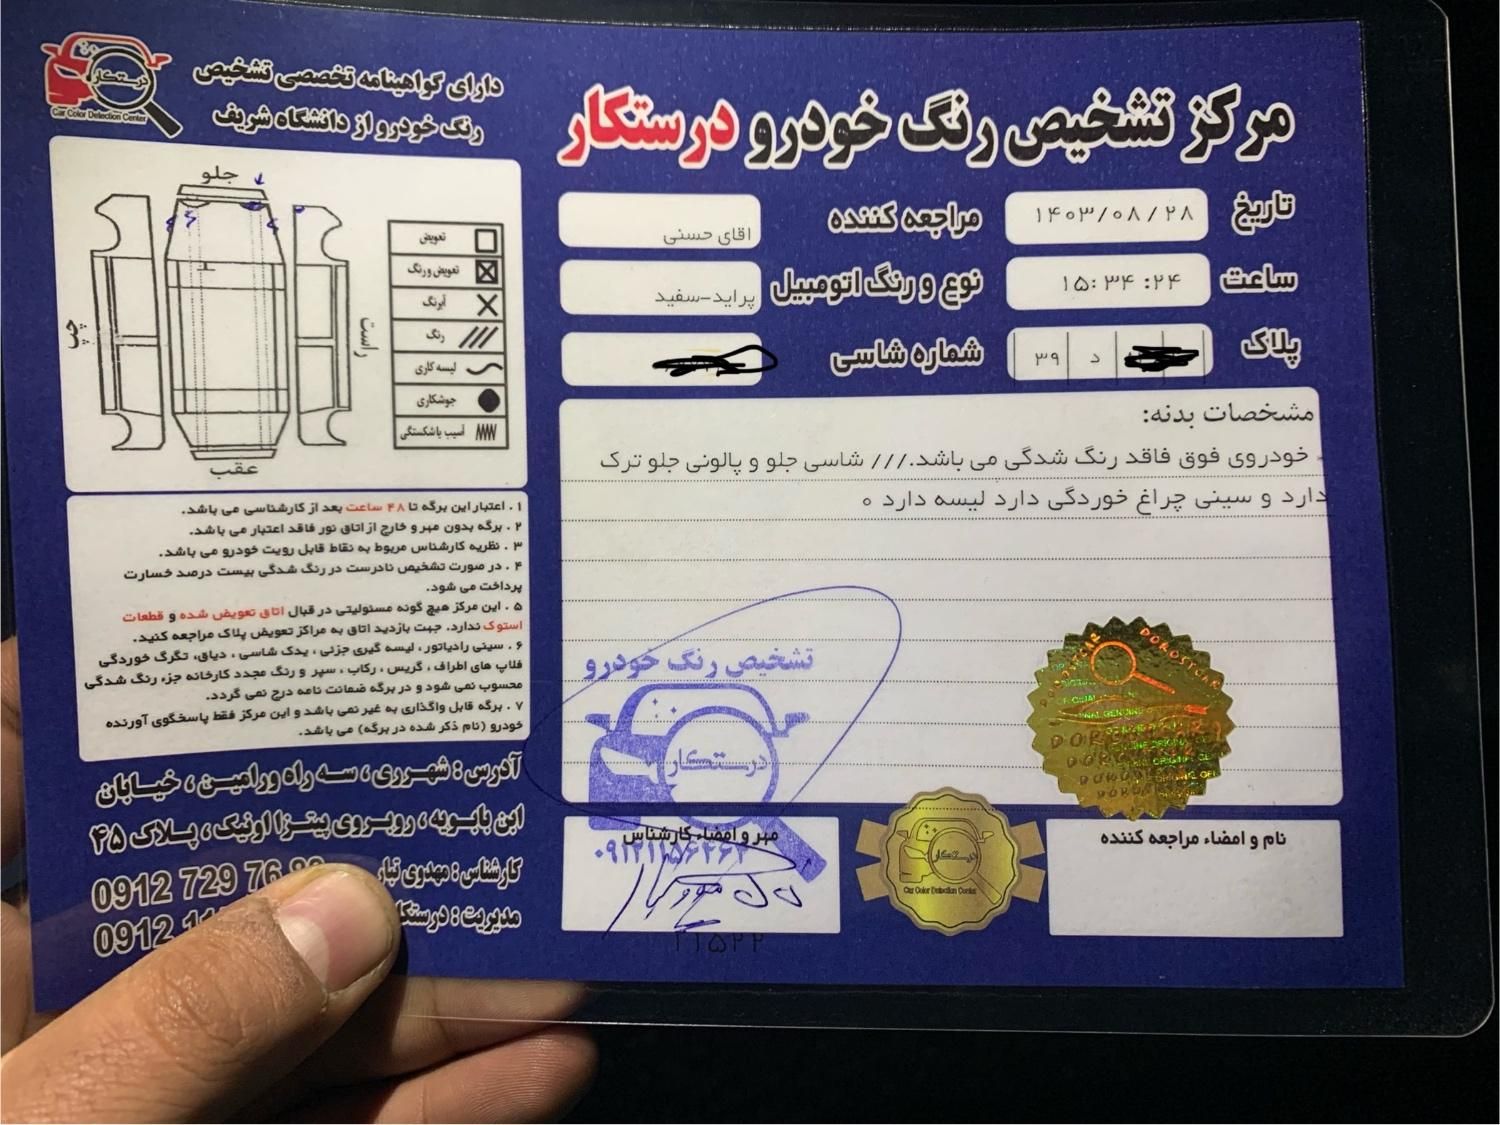 مرکز تشخیص رنگ خودرو درستکار
تاریخ ۱۴۰۳/۰۸/۲۸
مراجعه کننده اقای حسنی
ساعت ۱۵:۳۴:۲۴
نوع و رنگ اتومبیل پراید-سفید
پلاک د ۳۹
شماره شاسی
مشخصات بدنه:
خودروی فوق فاقد رنگ شدگی می باشد./// شاسی جلو و پالونی جلو ترک
دارد و سینی چراغ خوردگی دارد لیسه دارد ه
تشخیص رنگ خودرو
درستکار
DOROSTCAR
مهر و امضاء کارشناس
درستکار
Car Color Detection Center
نام و امضاء مراجعه کننده
۲۱۵۲۲
درستکار
Car Color Detection Center
دارای گواهینامه تخصصی تشخیص
رنگ خودرو از دانشگاه شریف
جلو
چپ
راست
عقب
تعویض
تعویض و رنگ
آبرنگ
رنگ
لیسه کاری
جوشکاری
آسیب یا شکستگی
۱. اعتبار این برگه تا ۴۸ ساعت بعد از کارشناسی می باشد.
۲. برگه بدون مهر و خارج از اتاق نور فاقد اعتبار می باشد.
۳. نظریه کارشناس مربوط به نقاط قابل رویت خودرو می باشد.
۴. در صورت تشخیص نادرست در رنگ شدگی بیست درصد خسارت
پرداخت می شود.
۵. این مرکز هیچ گونه مسئولیتی در قبال اتاق تعویض شده و قطعات
استوک ندارد. جهت بازدید اتاق به مراکز تعویض پلاک مراجعه کنید.
۶. سینی رادیاتور، لیسه گیری جزئی، یدک شاسی، دیاق، تگرگ خوردگی
فلاپ های اطراف، گریس، رکاب، سپر و رنگ مجدد کارخانه جزء رنگ شدگی
محسوب نمی شود و در برگه ضمانت نامه درج نمی گردد.
۷. برگه قابل واگذاری به غیر نمی باشد و این مرکز فقط پاسخگوی آورنده
خودرو (نام ذکر شده در برگه) می باشد.
آدرس: شهرری، سه راه ورامین، خیابان
ابن بابویه، روبروی پیتزا اونیک، پلاک ۴۵
کارشناس: مهدوی تبار 0912 729 76
مدیریت: درستکار 0912